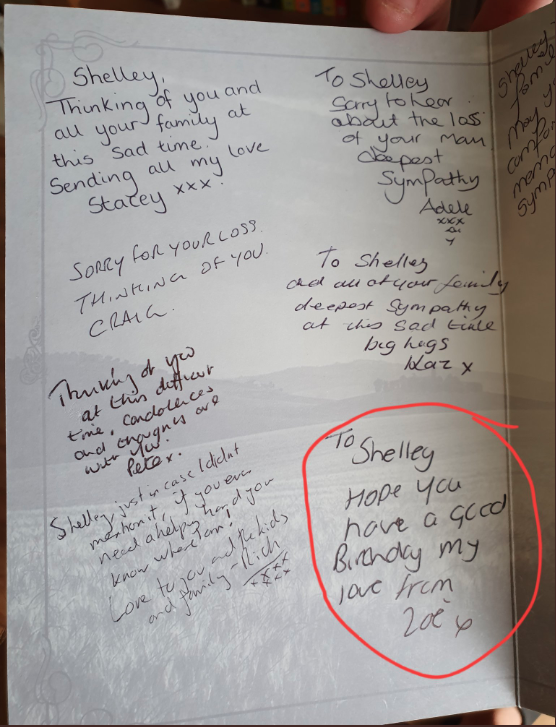 Shelley,
Thinking of you and
all your family at
this sad time.
Sending all my love
Stacey xxx.
To Shelley
Sorry to hear
about the loss
of your Mam
deepest
Sympathy
Adele
xxx
SORRY FOR YOUR LOSS.
THINKING OF YOU.
CRAIG.
To Shelley
and all of your family
deepest Sympathy
at this Sad time
big hugs
x
Thinking of you
at this difficult
time, condolences
and thoughts are
with you.
Peter.
Shelley just in case I didnt
mention it, if you ever
need a helping hand you
know where I am!
Love to you and the kids
and family - Rich
xxxx
xxxx
To
Shelley
HOPE YOU
have a good
Birthday my
love from
Zoë x
Shelley